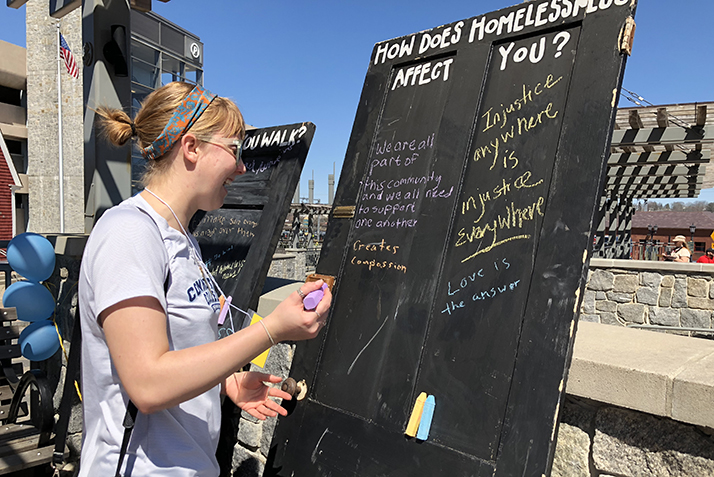 HOW DOES HOMELESSNESS
AFFECT YOU?
We are all
part of
this community
and we all need
to support
one another
Creates
compassion
Injustice
anywhere
is
injustice
everywhere
Love is
the answer
YOU WALK?